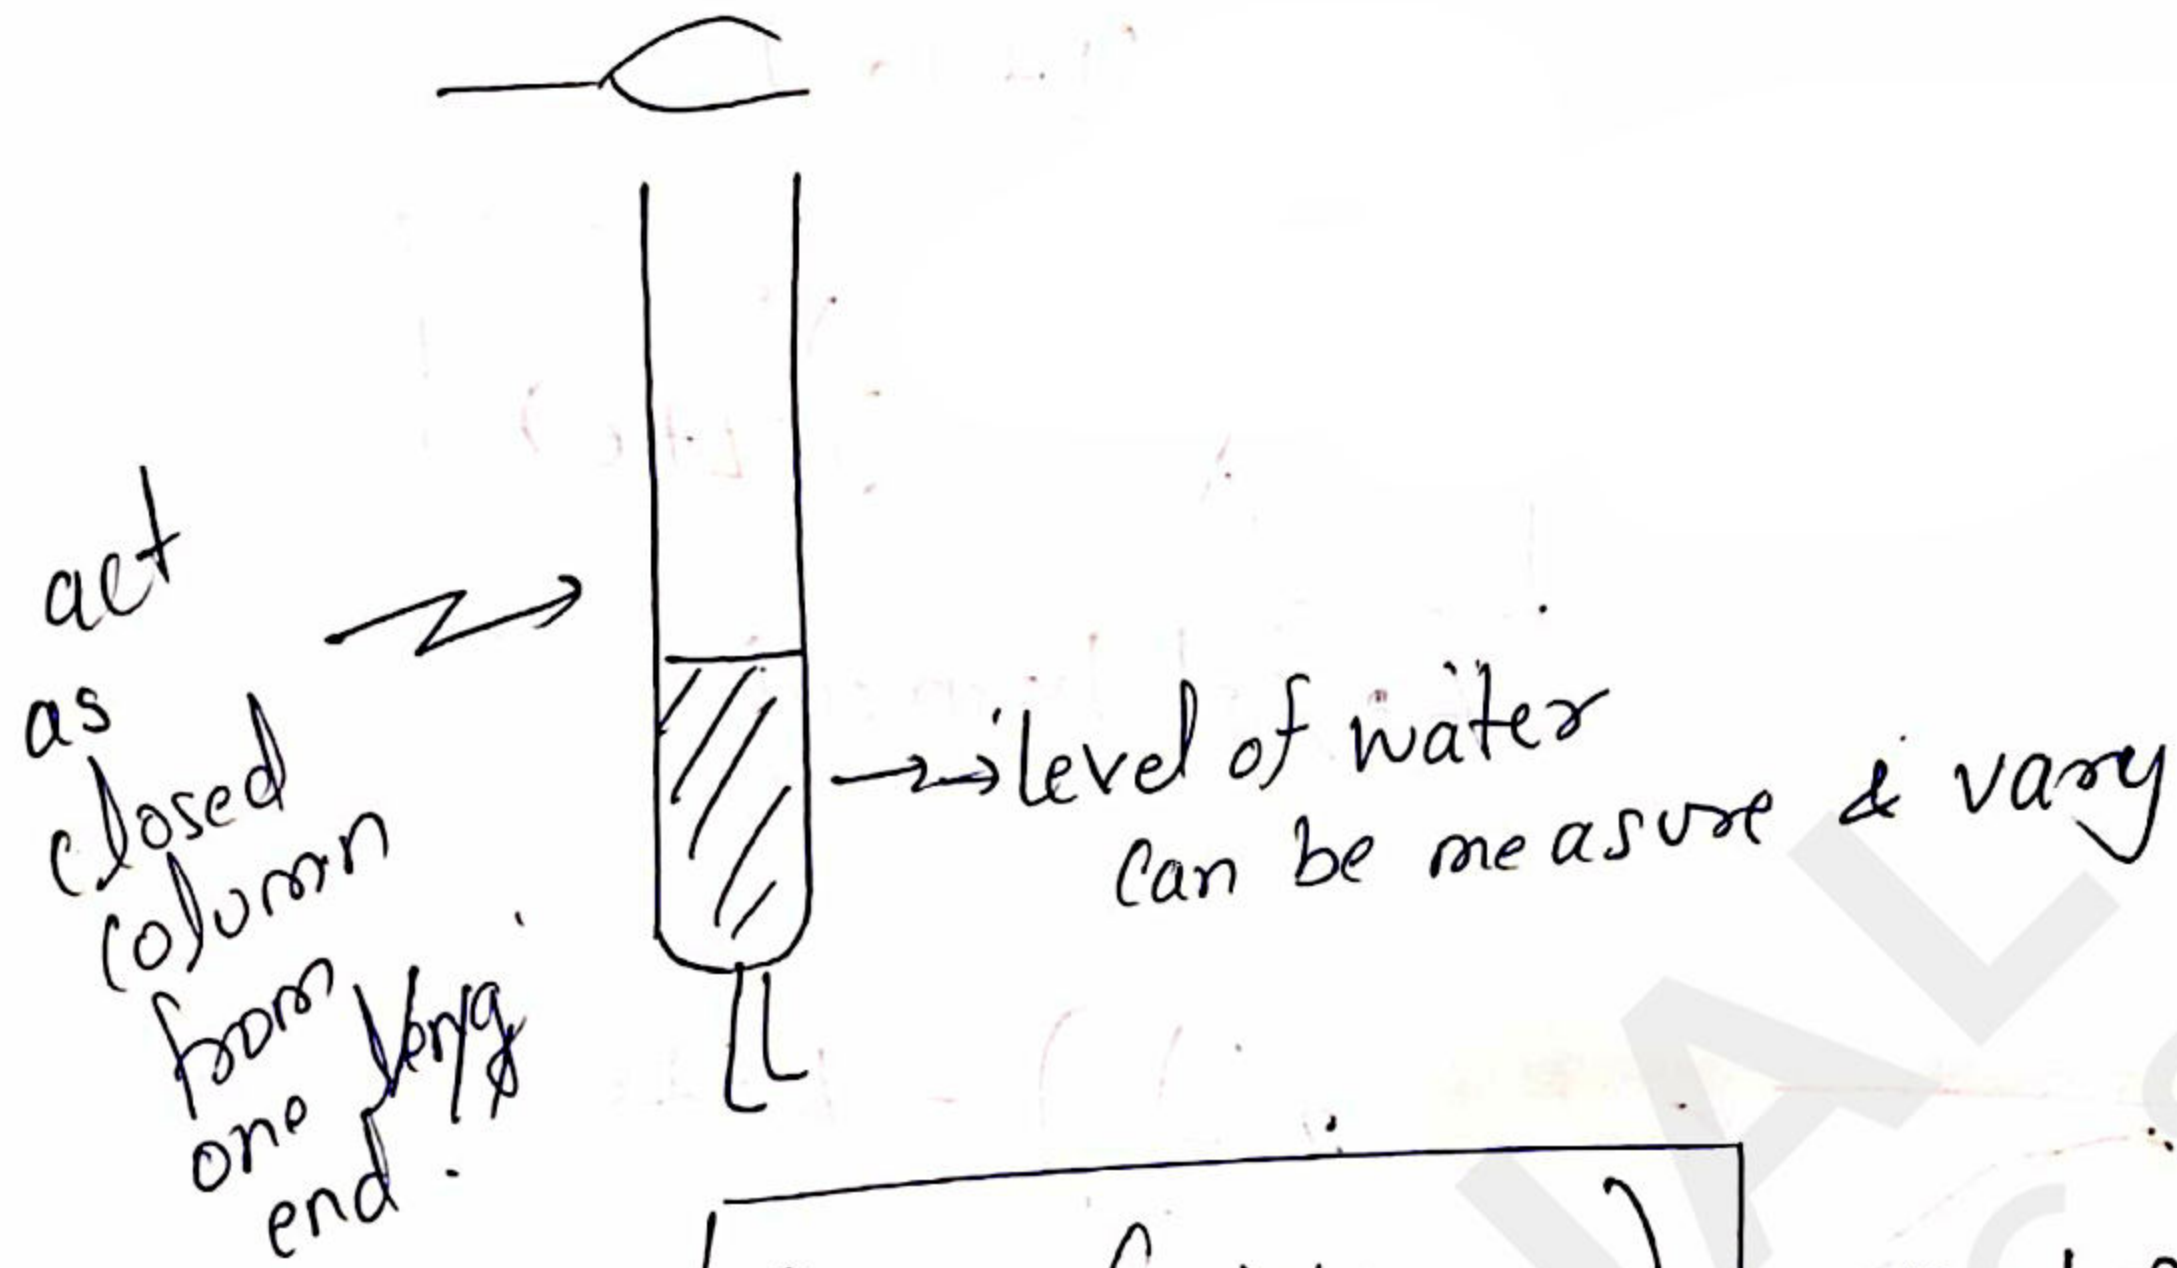 act
as
closed
column
from
one
end.
level of water
can be measure & vary